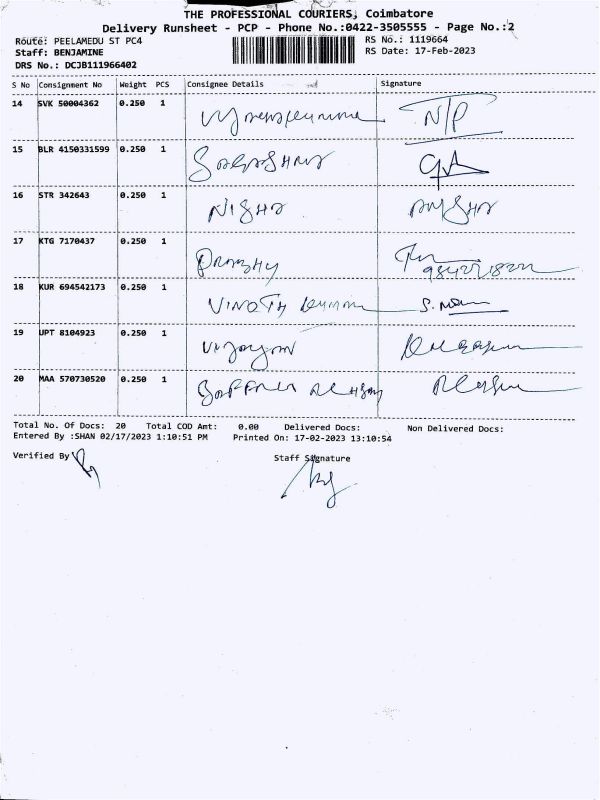 THE PROFESSIONAL COURIERS, Coimbatore
Delivery Runsheet - PCP - Phone No.:0422-3505555 - Page No.:2
Route: PEELAMEDU ST PC4
Staff: BENJAMINE
DRS No.: DCJB111966402
RS No.: 1119664
RS Date: 17-Feb-2023
S No Consignment No Weight PCS Consignee Details Signature
14 SVK 50004362 0.250 1 N/P
15 BLR 4150331599 0.250 1
16 STR 342643 0.250 1 NISHA
17 KTG 7170437 0.250 1
18 KUR 694542173 0.250 1 VINOTH
19 UPT 8104923 0.250 1
20 MAA 570730520 0.250 1
Total No. Of Docs: 20 Total COD Amt: 0.00 Delivered Docs: Non Delivered Docs:
Entered By :SHAN 02/17/2023 1:10:51 PM Printed On: 17-02-2023 13:10:54
Verified By
Staff Signature